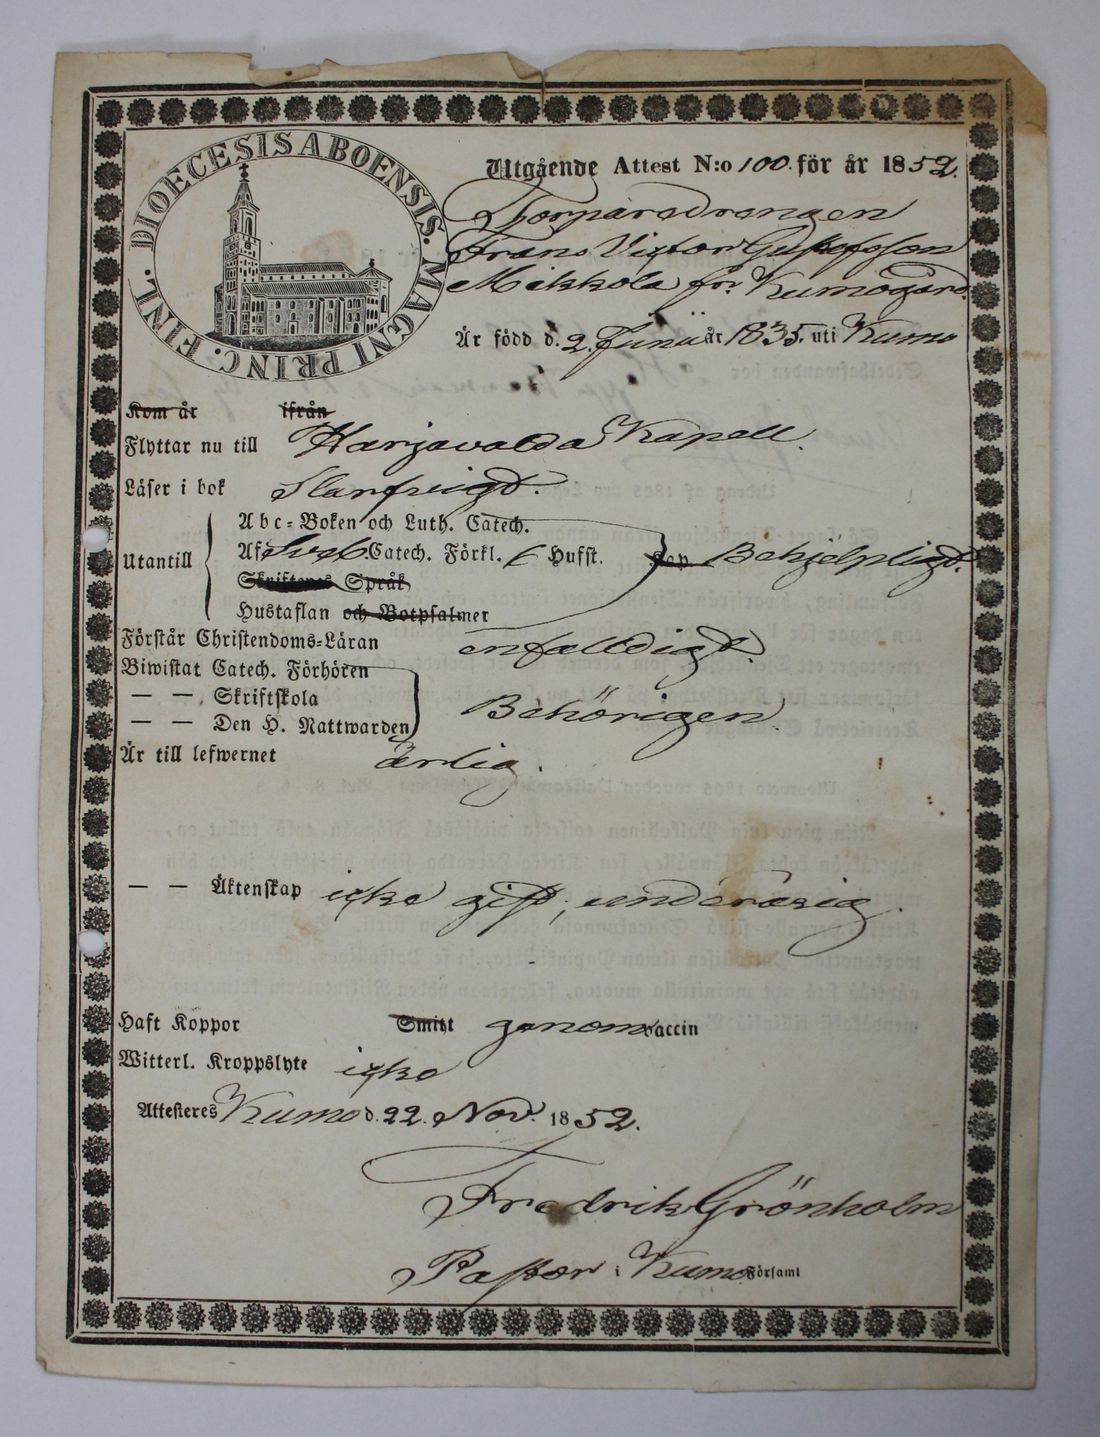 DIOECESIS ABOENSIS. MAGNI PRINC. FINL.
Utgående Attest N:o 100. för år 1852.
Torparedrengen
Frans Victor Gustafsson
Mikkola fr. Kumogård.
Är född d. 2. Junii år 1835. uti Kumo
Kom år ifrån
Flyttar nu till Harjavalda Kapell.
Läser i bok Klarfeigt.
Abc-Boken och Luth. Catech.
Utantill Af Sveb. Catech. Förkl. Husst. Behjelpligt.
Skriftenes Språk
Hustaflan och Botpsalmer
Förstår Christendoms-Läran enfalldigt.
Biwistat Catech. Förhören
— — Skriftskola
— — Den H. Nattwarden Behörigen
Är till lefwernet ärlig.
— — Äktenskap icke gift, underårig.
Haft Koppor Smitt genom vaccin
Witterl. Kroppslyte icke
Attesteres Kumo d. 22. Nov. 1852.
Fredrik Grönholm
Pastor i Kumo Församl